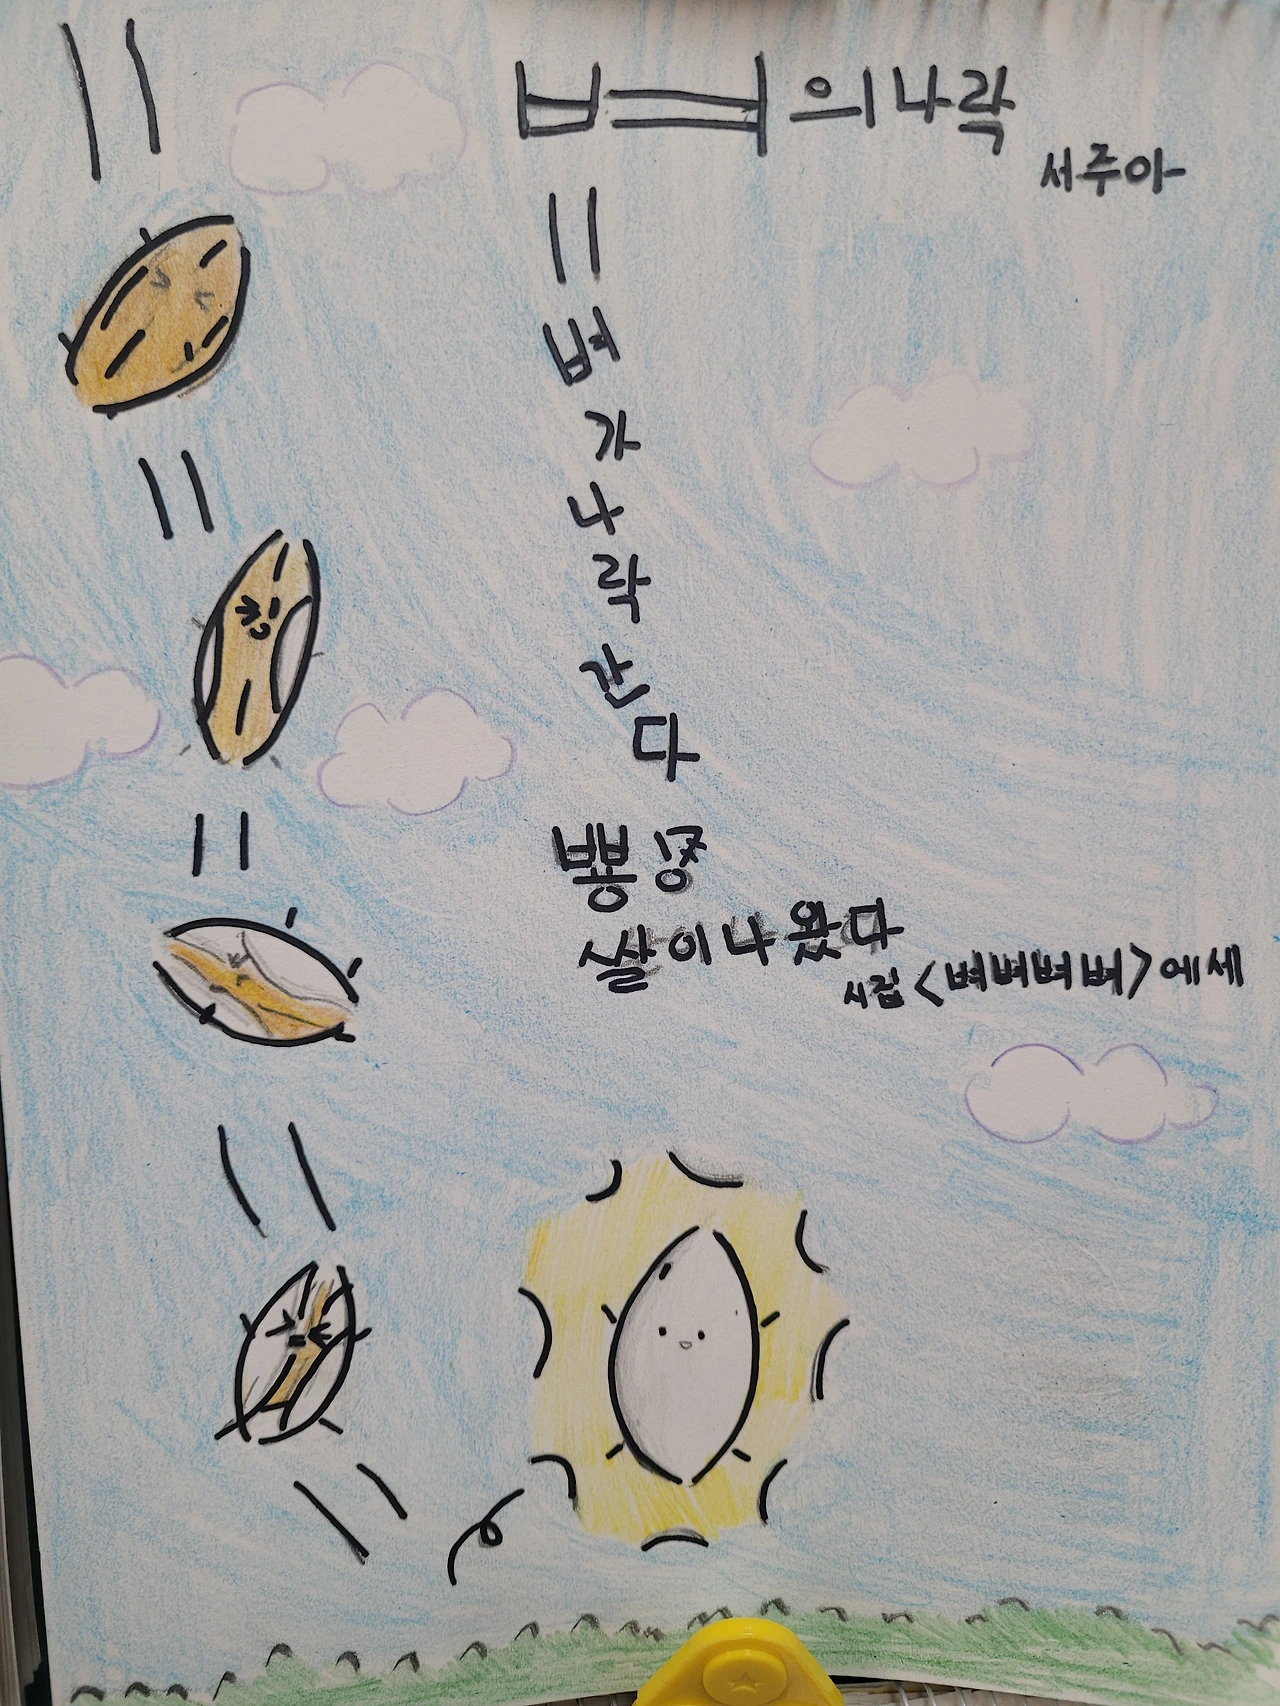 벼의나락
서주아
벼
가
나
락
간
다
뿅
쌀이나왔다
시집<벼벼벼벼>에세